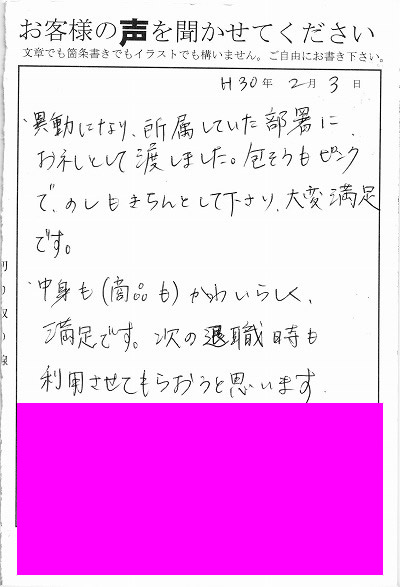 お客様の声を聞かせてください
文章でも箇条書きでもイラストでも構いません。ご自由にお書き下さい。
H30年 2月 3日
・異動になり、所属していた部署に、
お礼として渡しました。包そうもピンク
で、のしもきちんとして下さり、大変満足
です。
・中身も(商品も)かわいらしく、
満足です。次の退職時も
利用させてもらおうと思います.
切り取り線